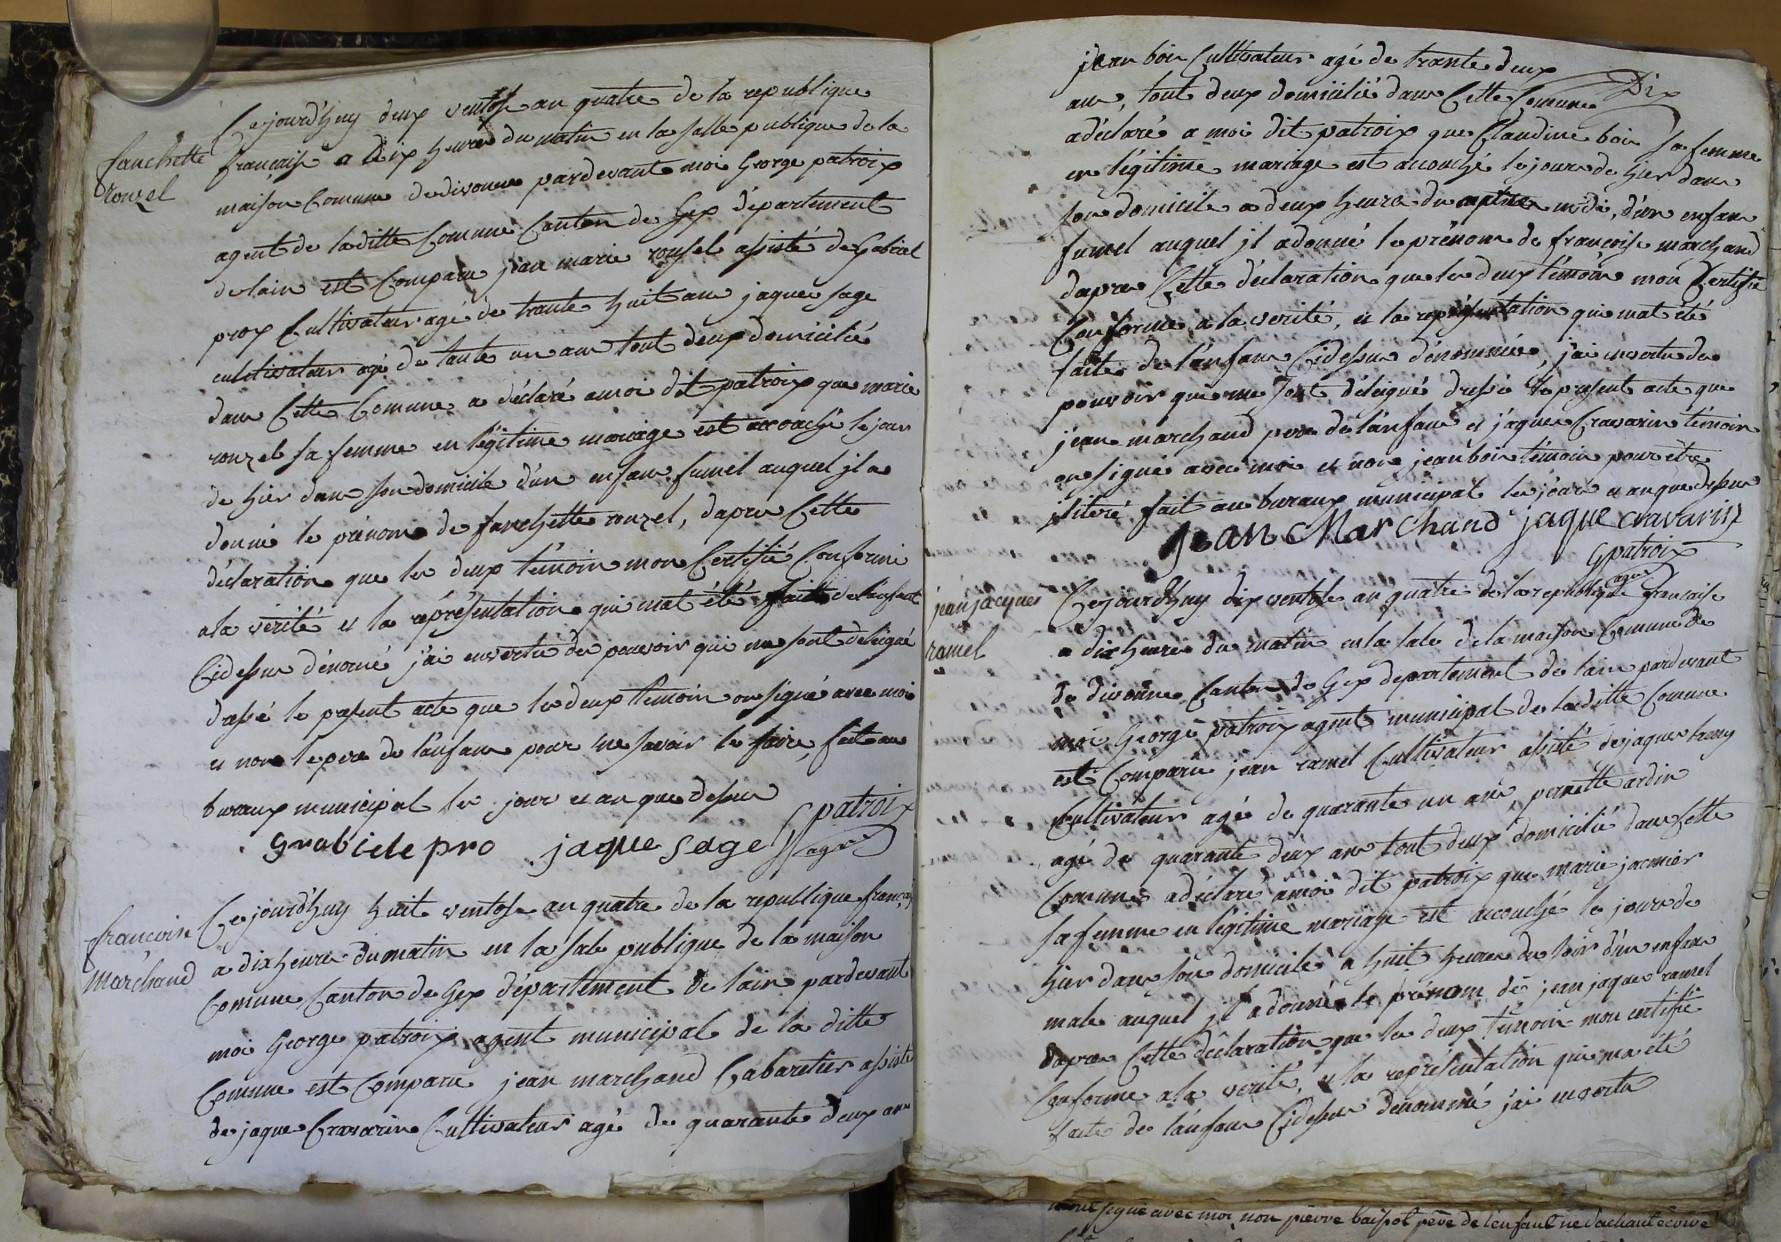 Cejourd'huy deux ventose an quatre de la republique
fanchette
rouzel
francaise a dix heures du matin en la salle publique de la
maison Comune de divonne pardevant moi George patroix
agent de laditte Comune Canton de Gex département
de lain est Comparu jean marie rouzel assisté de Gabriel
prox Cultivateur agé de trante huit ans jaques sage
cultivateur agé de tante un ans tout deux domicilié
dans Cette Comune a déclaré a moi dit patroix que marie
rouzel sa femme en légitime mariage est accouché le jour
de hier dans son domicile d'un enfans fumel auquel jl a
donné le prénom de fanchette rouzel, dapres Cette
déclaration que les deux témoin mon Certifié Conforme
a la vérité et la représentation qui mat été faite de l'enfant
Cidessus dénomé j'ai envertu des pouvoirs qui me sont délégué
dressé le present acte que les deux témoin on signé avec moi
et non le pere de l'enfans pour ne savoir le faire, fait au
buraux municipal les jour et an que dessus
Grabiele pro jaque sage G patroix
agt
Cejourd'huy huit ventose an quatre de la republique français
francoise
marchand
a dix heures du matin en la sale publique de la maison
Comune Canton de Gex département de lain pardevant
moi George patroix agent municipal de la ditte
Comune est Comparu jean marchand Cabaretier assisté
de jaque Cravarin Cultivateur agé de quarante deux ans
Dix
jean boin Cultivateur agé de trante deux
ans, tout deux domicilié dans Cette Comune
a déclaré a moi dit patroix que Claudine boin sa femme
en légitime mariage est accouché le jour de hier dans
son domicile a deux heures du apres midi, d'un enfans
fumel auquel jl a donné le prénom de francoise marchand
dapres Cette déclaration que les deux témoin mon Certifié
Conforme a la verité, et la représentation qui mat été
faite de l'enfans Cidessus dénommée, j'ai envertu des
pouvoirs qui me sont délégué dressé le present acte que
jean marchand pere de l'enfans et jaques Cravarin témoin
on signé avec moi et non jean boin témoin pour etre
jliteré fait au buraux municipal les jour et an que dessus
jean Marchand jaque cravarin
G patroix
agent
jean jacques
ramel
Cejourd'huy dix ventose an quatre de la republique francaise
a dix heures du matin en la sale de la maison Comune de
de divonne Canton de Gex departement de lain pardevant
moi George patroix agent municipal de laditte Comune
est Comparu jean ramel Cultivateur assisté de jaques
Cultivateur agé de quarante un ans, pernette ardin
agé de quarante deux ans tout deux domicilié dans Cette
Comune a déclaré a moi dit patroix que marie jacmier
sa femme en légitime mariage est accouché le jour de
hier dans son domicile a huit heures du soir d'un enfans
male auquel jl a donné le prénom de jean jaque ramel
dapres Cette déclaration que les deux témoin mon certifié
Conforme a la verité, et la représentation qui ma été
faite de l'enfans Cidessus dénommé j'ai envertu
signé avec moi non pierre baipot père de l'enfant ne sachant écrire